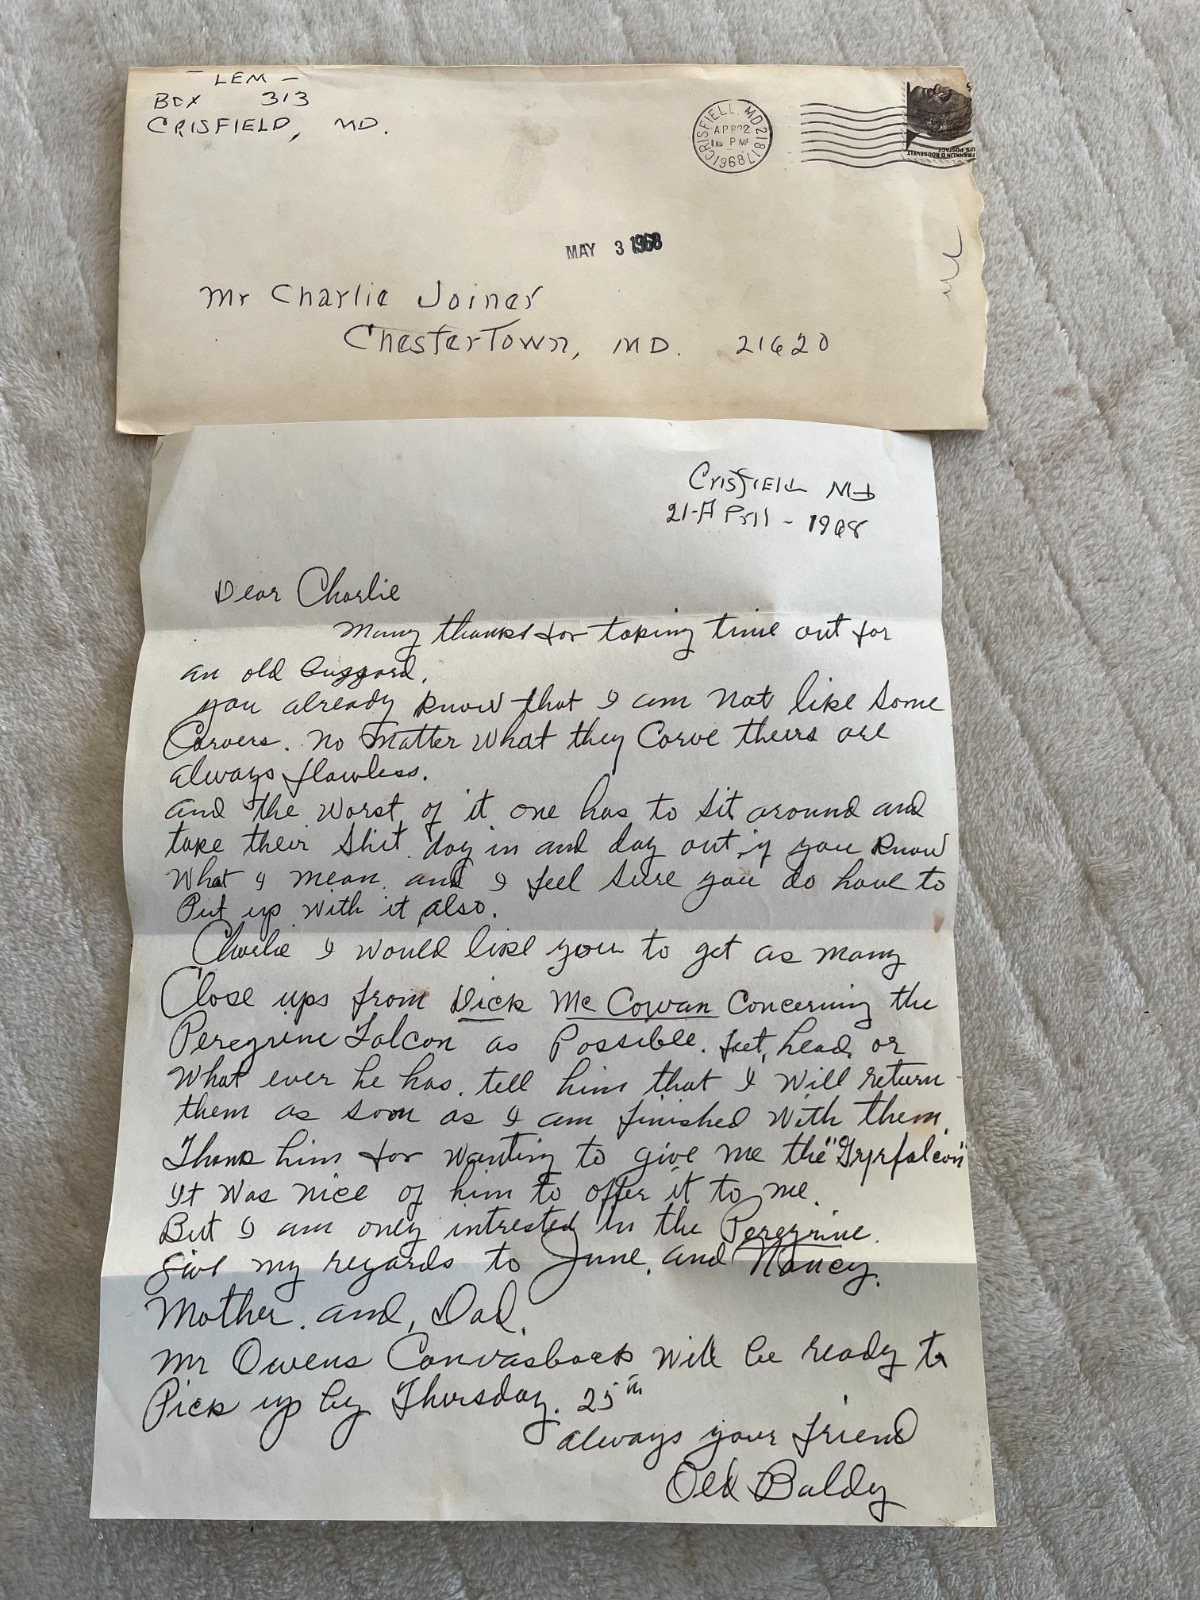 - LEM -
BOX 313
CRISFIELD, MD.
CRISFIELD, MD 21817
APR 22
PM
1968
FRANKLIN D. ROOSEVELT
U.S. POSTAGE
MAY 3 1968
Mr Charlie Joiner
ChesterTown, MD. 21620
Crisfield Md
21-April-1968
Dear Charlie
Many thanks for taking time out for
an old Buzzard.
you already know that I am not like some
Carvers. No matter what they Carve theirs are
always flawless.
and the worst of it one has to sit around and
take their shit day in and day out, if you know
what I mean. and I feel sure you do have to
Put up with it also.
Charlie I would like you to get as many
Close ups from Dick Mc Cowan Concerning the
Peregrine Falcon as Possible. feet, head, or
what ever he has. tell him that I will return
them as soon as I am finished with them.
Thank him for wanting to give me the "Gryrfalcon"
It was nice of him to offer it to me.
But I am only intrested in the Peregrine.
Give my regards to June, and Nancy.
Mother, and, Dad.
Mr Owens Canvasback will be ready to
Pick up by Thursday. 25th
always your friend
Old Baldy